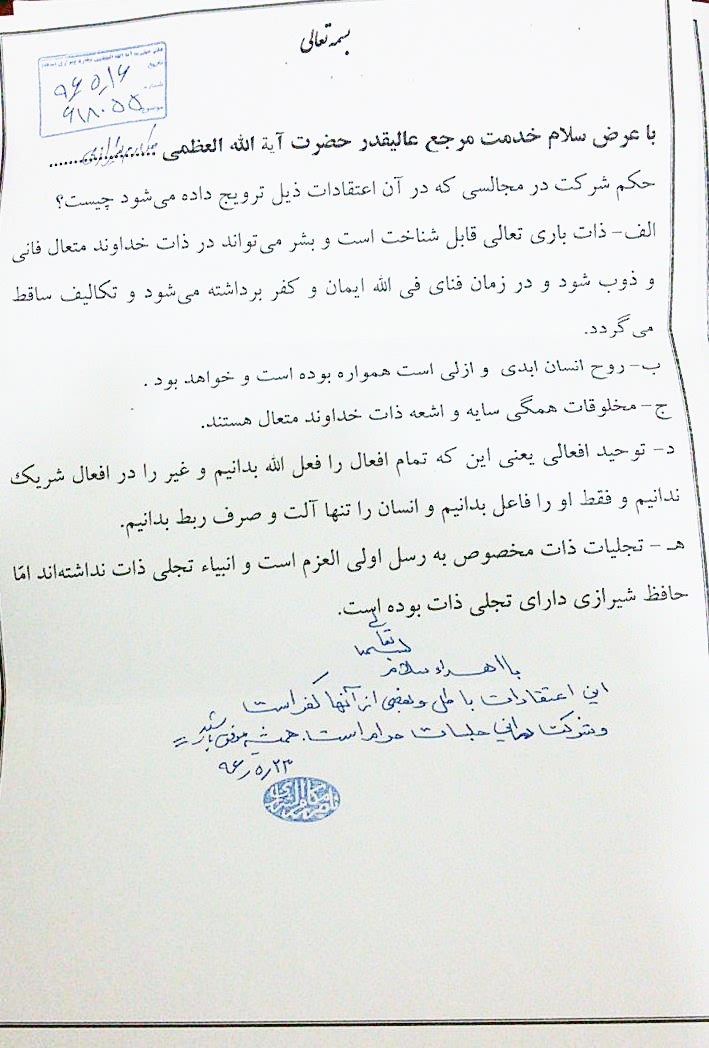 بسمه تعالی
دفتر حضرت آیة الله العظمی مکارم شیرازی
تاریخ ۹۶/۵/۱۶
شماره
موضوع ۹۱۸۰۵۵
با عرض سلام خدمت مرجع عالیقدر حضرت آیة الله العظمی مکارم شیرازی
حکم شرکت در مجالسی که در آن اعتقادات ذیل ترویج داده می‌شود چیست؟
الف- ذات باری تعالی قابل شناخت است و بشر می‌تواند در ذات خداوند متعال فانی
و ذوب شود و در زمان فنای فی الله ایمان و کفر برداشته می‌شود و تکالیف ساقط
می‌گردد.
ب- روح انسان ابدی و ازلی است همواره بوده است و خواهد بود .
ج- مخلوقات همگی سایه و اشعه ذات خداوند متعال هستند.
د- توحید افعالی یعنی این که تمام افعال را فعل الله بدانیم و غیر را در افعال شریک
ندانیم و فقط او را فاعل بدانیم و انسان را تنها آلت و صرف ربط بدانیم.
هـ - تجلیات ذات مخصوص به رسل اولی العزم است و انبیاء تجلی ذات نداشته‌اند امّا
حافظ شیرازی دارای تجلی ذات بوده است.
بسمه تعالی
با اهداء سلام
این اعتقادات باطل و بعضی از آنها کفر است
و شرکت در این جلسات حرام است. همیشه موفق باشید
۹۶/۵/۲۳
ناصر مکارم الشیرازی